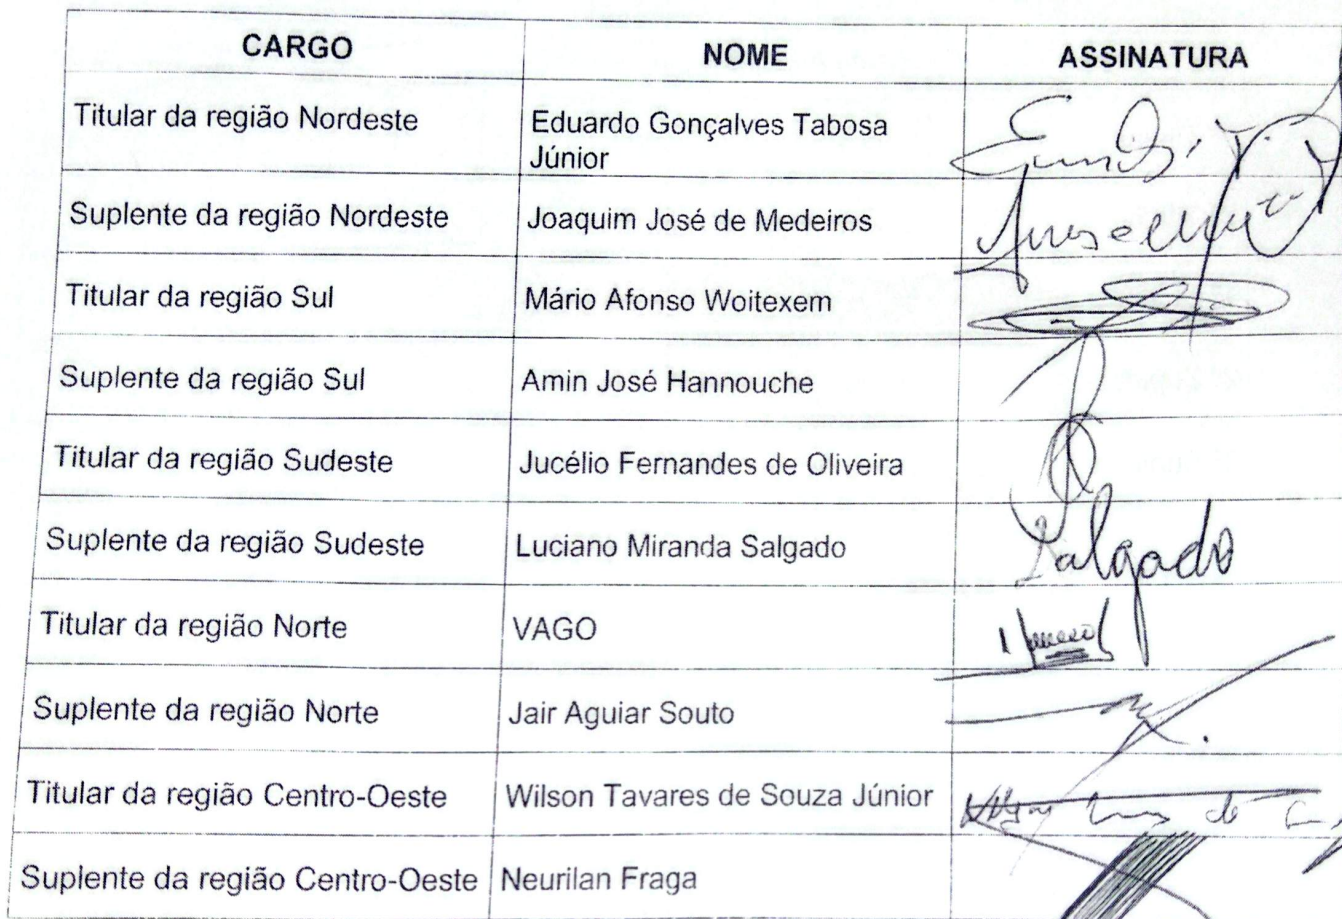 CARGO NOME ASSINATURA
Titular da região Nordeste Eduardo Gonçalves Tabosa
Júnior
Suplente da região Nordeste Joaquim José de Medeiros
Titular da região Sul Mário Afonso Woitexem
Suplente da região Sul Amin José Hannouche
Titular da região Sudeste Jucélio Fernandes de Oliveira
Suplente da região Sudeste Luciano Miranda Salgado Salgado
Titular da região Norte VAGO
Suplente da região Norte Jair Aguiar Souto
Titular da região Centro-Oeste Wilson Tavares de Souza Júnior
Suplente da região Centro-Oeste Neurilan Fraga